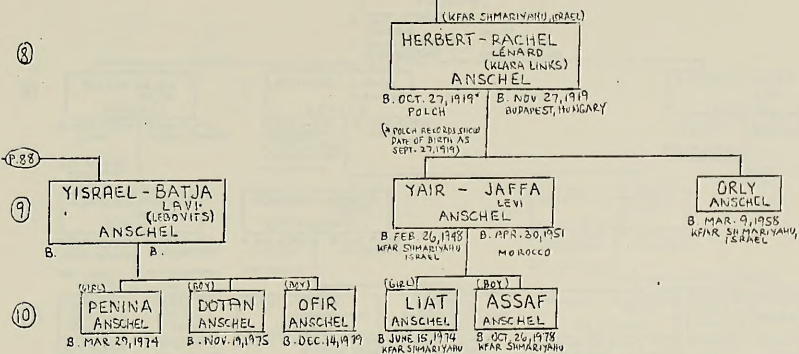 (KFAR SHMARIYAHU, ISRAEL)
8
HERBERT - RACHEL
LÉNARD
(KLARA LINKS)
ANSCHEL
B. OCT. 27, 1919*
POLCH
B. NOV 27, 1919
BUDAPEST, HUNGARY
(* POLCH RECORDS SHOW
DATE OF BIRTH AS
SEPT. 27, 1919)
P.88
9
YISRAEL - BATJA
LAVI
(LEBOVITS)
ANSCHEL
B.
B.
YAIR - JAFFA
LEVI
ANSCHEL
B FEB 26, 1948
KFAR SHMARIYAHU
ISRAEL
B. APR. 30, 1951
MOROCCO
ORLY
ANSCHEL
B. MAR. 9, 1958
KFAR SHMARIYAHU,
ISRAEL
10
(GIRL)
PENINA
ANSCHEL
B. MAR 29, 1974
(BOY)
DOTAN
ANSCHEL
B. NOV. 19, 1975
(BOY)
OFIR
ANSCHEL
B. DEC. 14, 1979
(GIRL)
LIAT
ANSCHEL
B JUNE 15, 1974
KFAR SHMARIYAHU
(BOY)
ASSAF
ANSCHEL
B. OCT. 26, 1978
KFAR SHMARIYAHU